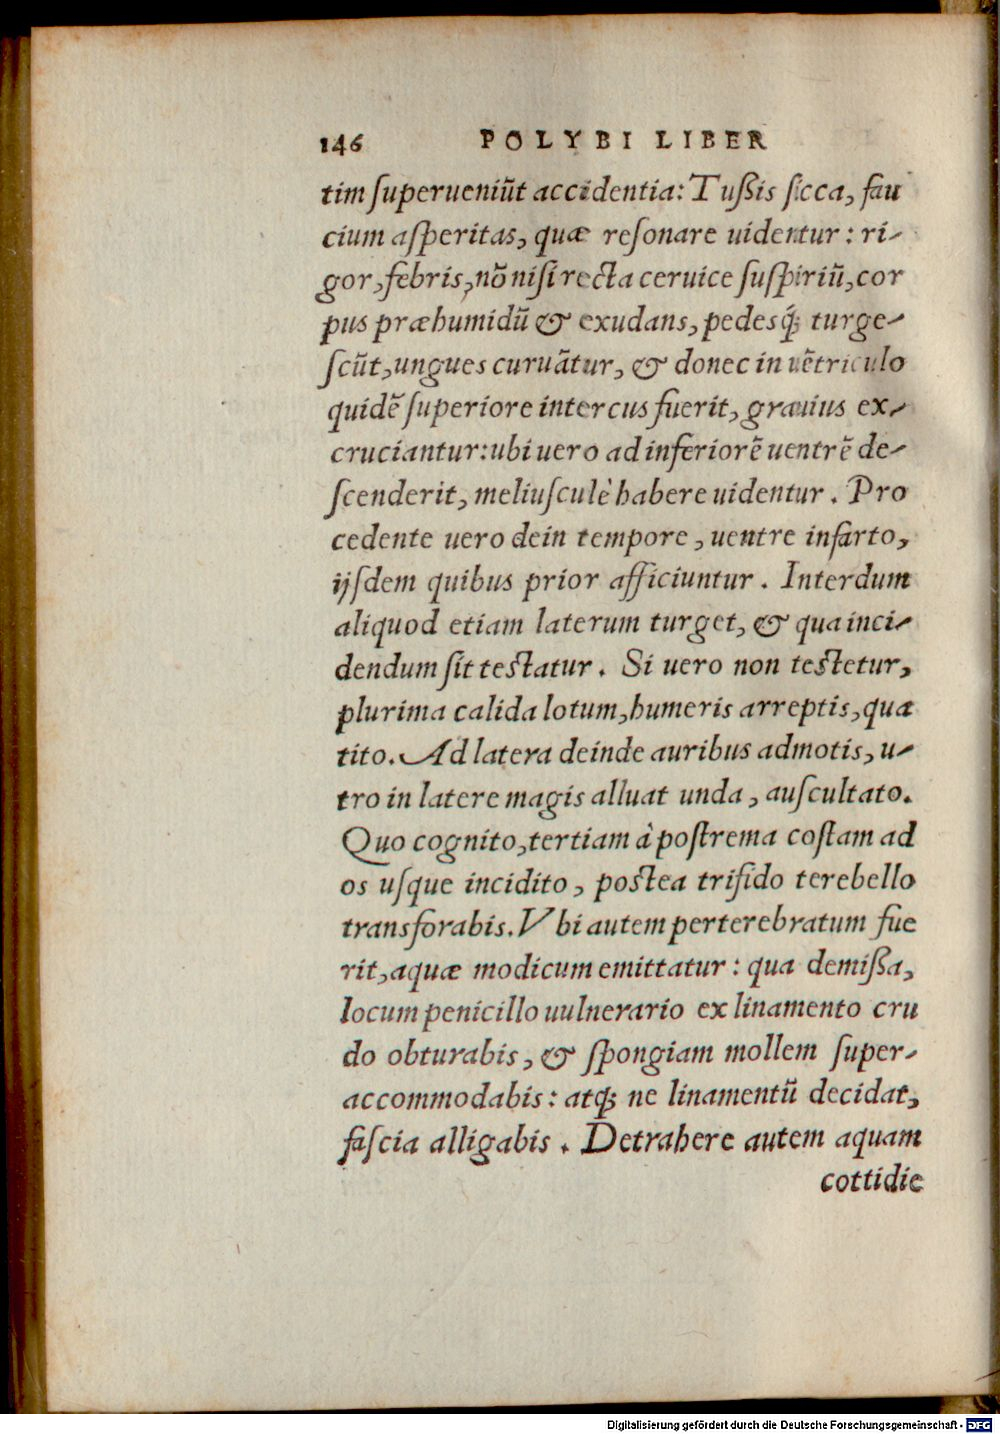 146 POLYBI LIBER
tim ſuperueniũt accidentia: Tußis ſicca, fau
cium aſperitas, quæ reſonare uidentur: ri-
gor, febris, nõ niſi recta ceruice ſuſpiriũ, cor
pus præhumidũ & exudans, pedesq́; turge-
ſcũt, ungues curuãtur, & donec in uẽtriculo
quidẽ ſuperiore intercus fuerit, grauius ex-
cruciantur: ubi uero ad inferiorẽ uentrẽ de-
ſcenderit, meliuſculè habere uidentur. Pro
cedente uero dein tempore, uentre infarto,
ijſdem quibus prior afficiuntur. Interdum
aliquod etiam laterum turget, & qua inci-
dendum ſit teſtatur. Si uero non teſtetur,
plurima calida lotum, humeris arreptis, qua
tito. Ad latera deinde auribus admotis, u-
tro in latere magis alluat unda, auſcultato.
Quo cognito, tertiam à poſtrema coſtam ad
os uſque incidito, poſtea trifido terebello
transforabis. Vbi autem perterebratum fue
rit, aquæ modicum emittatur: qua demißa,
locum penicillo uulnerario ex linamento cru
do obturabis, & ſpongiam mollem ſuper-
accommodabis: atq; ne linamentũ decidat,
faſcia alligabis. Detrahere autem aquam
cottidie
Digitalisierung gefördert durch die Deutsche Forschungsgemeinschaft - DFG